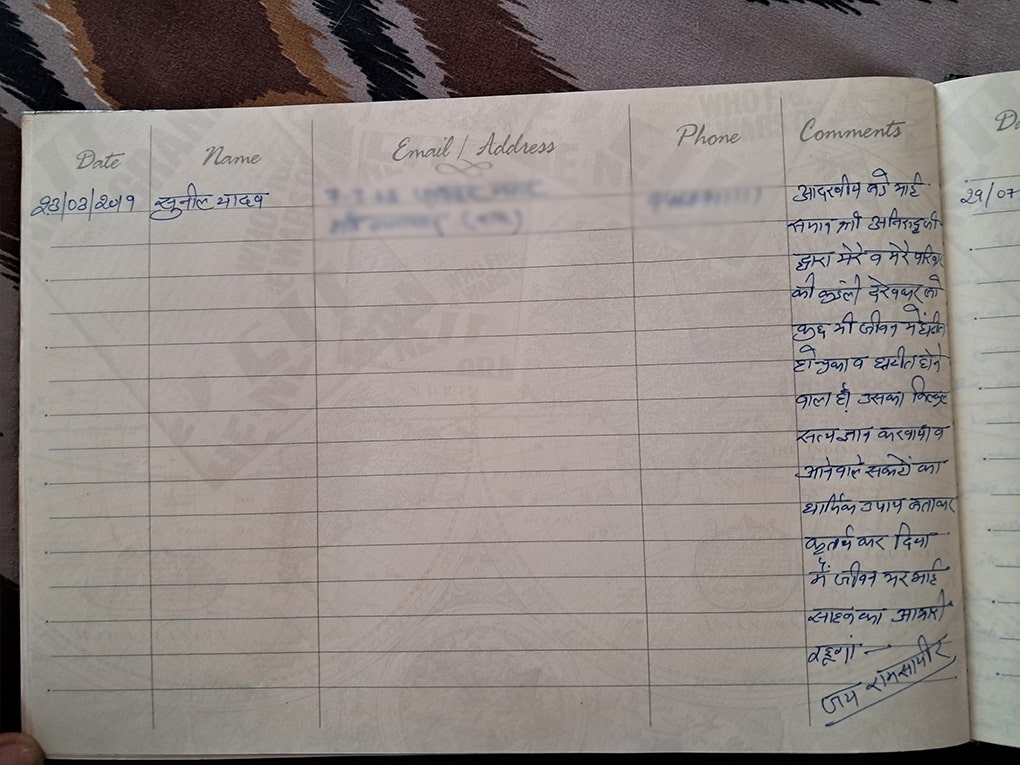 Date Name Email / Address Phone Comments
23/03/2019 सुनील यादव
आदरणीय बडे भाई
समान श्री अनिरुद्धजी
द्वारा मेरे व मेरे परिवार
की कुडंली देखकर जो
कुछ भी जीवन में घटीत
हो चुका व घटीत होने
वाला है। उसका बिल्कुल
सत्य ज्ञान करवाया व
आने वाले सकटों का
धार्मिक उपाय बताकर
कृतार्थ कर दिया
मैं जीवन भर भाई
साहब का आभारी
रहूगां
जय रामसापीर
29/07